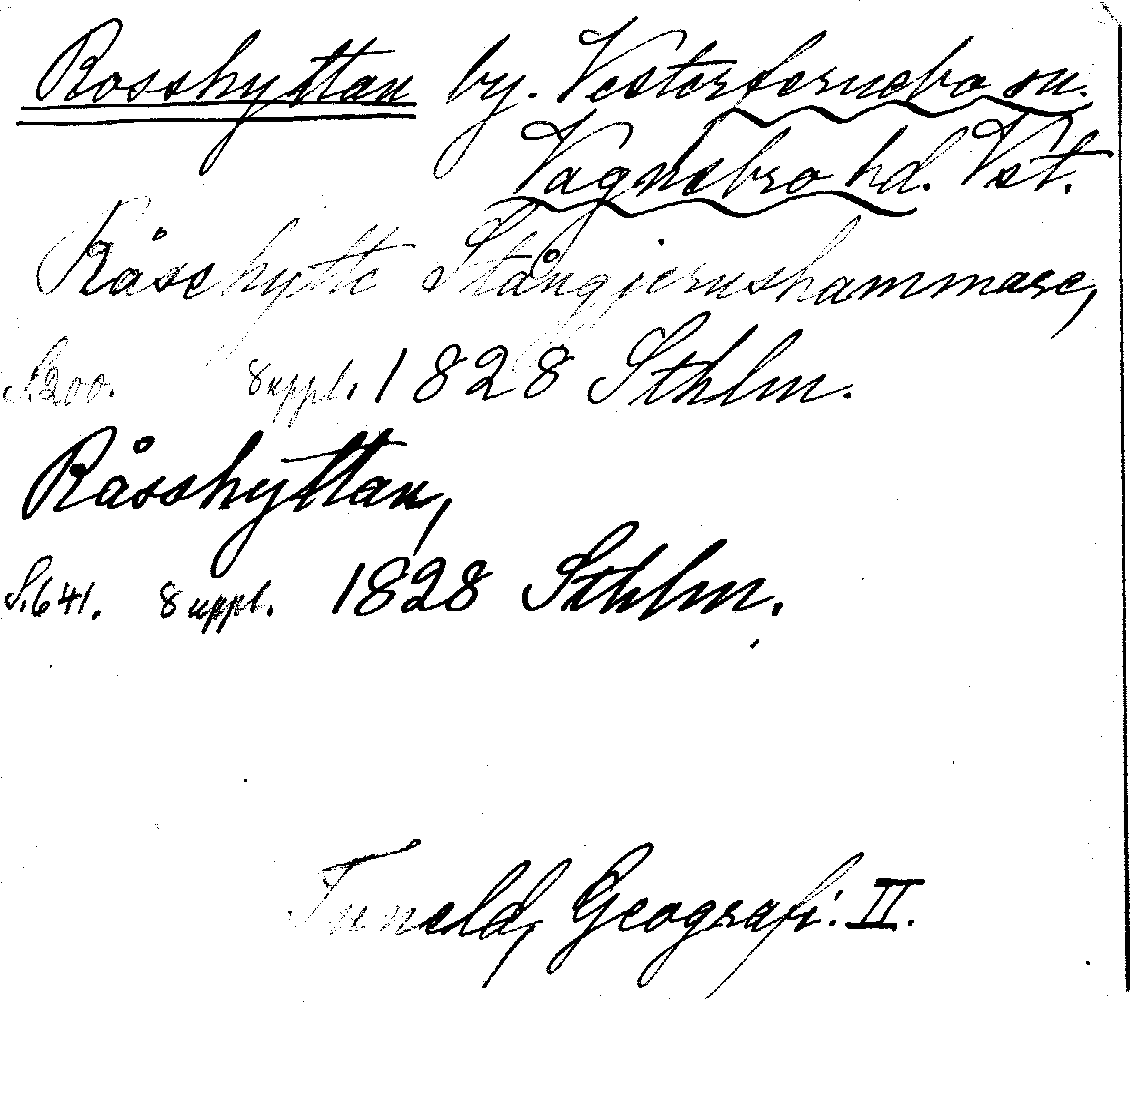 Rosshyttan by. Vesterfernebo sn.
Vagnsbro hd. Vst.
Råsehytte Stångjernshammare,
S.200. 8 uppl. 1828 Sthlm.
Råsshyttan,
S.641. 8 uppl. 1828 Sthlm.
Tuneld, Geografi. II.